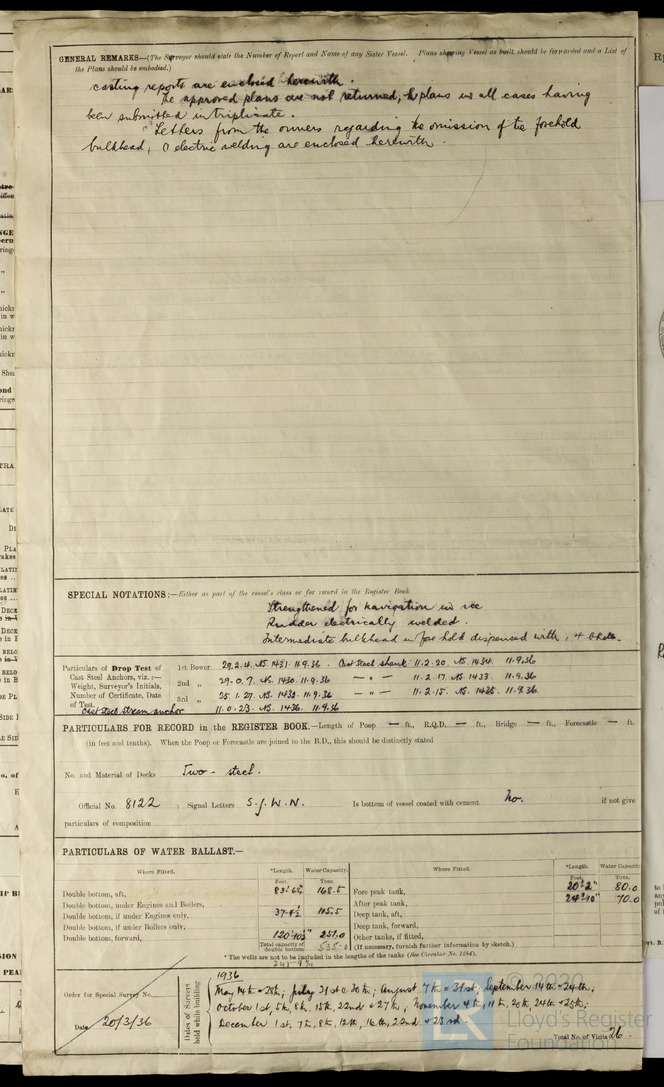 GENERAL REMARKS—(The Surveyor should state the Number of Report and Name of any Sister Vessel. Plans showing Vessel as built should be forwarded and a List of
the Plans should be embodied.)
casting reports are enclosed herewith.
The approved plans are not returned, the plans in all cases having
been submitted in triplicate.
Letters from the owners regarding the omission of the forehold
bulkhead, & electric welding are enclosed herewith.
SPECIAL NOTATIONS:—Either as part of the vessel's class or for record in the Register Book
Strengthened for navigation in ice
Rudder electrically welded.
Intermediate bulkhead in fore hold dispensed with,
Particulars of Drop Test of
Cast Steel Anchors, viz. :—
Weight, Surveyor's Initials,
Number of Certificate, Date
of Test.
1st Bower 1431. 11.9.36. Cast Steel shank. 11.2.20. 1434. 11.9.36
2nd „ 29.0.7. 1430. 11.9.36 — " — 11.2.17. 1433. 11.9.36.
3rd „ 25.1.27. 11.9.36 — " — 11.2.15. 11.9.36.
Cast steel stream anchor 11.0.23. 1436. 11.9.36
PARTICULARS FOR RECORD in the REGISTER BOOK.—Length of Poop — ft., R.Q.D. — ft., Bridge — ft., Forecastle — ft.
(in feet and tenths). When the Poop or Forecastle are joined to the B.D., this should be distinctly stated
No. and Material of Decks Two - steel.
Official No. 8122 ; Signal Letters S.J.W.N. Is bottom of vessel coated with cement No. if not give
particulars of composition
PARTICULARS OF WATER BALLAST.—
Where Fitted. *Length. Water Capacity. Where Fitted. *Length. Water Capacity.
Feet. Tons. Feet. Tons.
Double bottom, aft, 168.5 Fore peak tank, 20'-2" 80.0
Double bottom, under Engines and Boilers, After peak tank, 70.0
Double bottom, if under Engines only, 115.5 Deep tank, aft,
Double bottom, if under Boilers only, Deep tank, forward,
Double bottom, forward, 251.0 Other tanks, if fitted,
Total capacity of double bottom 535.0 (If necessary, furnish further information by sketch.)
* The wells are not to be included in the lengths of the tanks (See Circular No. 1284).
Order for Special Survey No.
Date 20/3/36
Dates of Surveys held while building
1936
May 14th & 28th; July 21st & 30th; August 7th & 31st; September 14th & 24th;
October 1st, 5th, 8th, 15th, 22nd & 27th, November 4th, 11th, 20th, 24th & 28th;
December 1st, 7th, 8th, 12th, 16th, 22nd & 23rd
Total No. of Visits 26.
© 2020
Lloyd's Register
Foundation